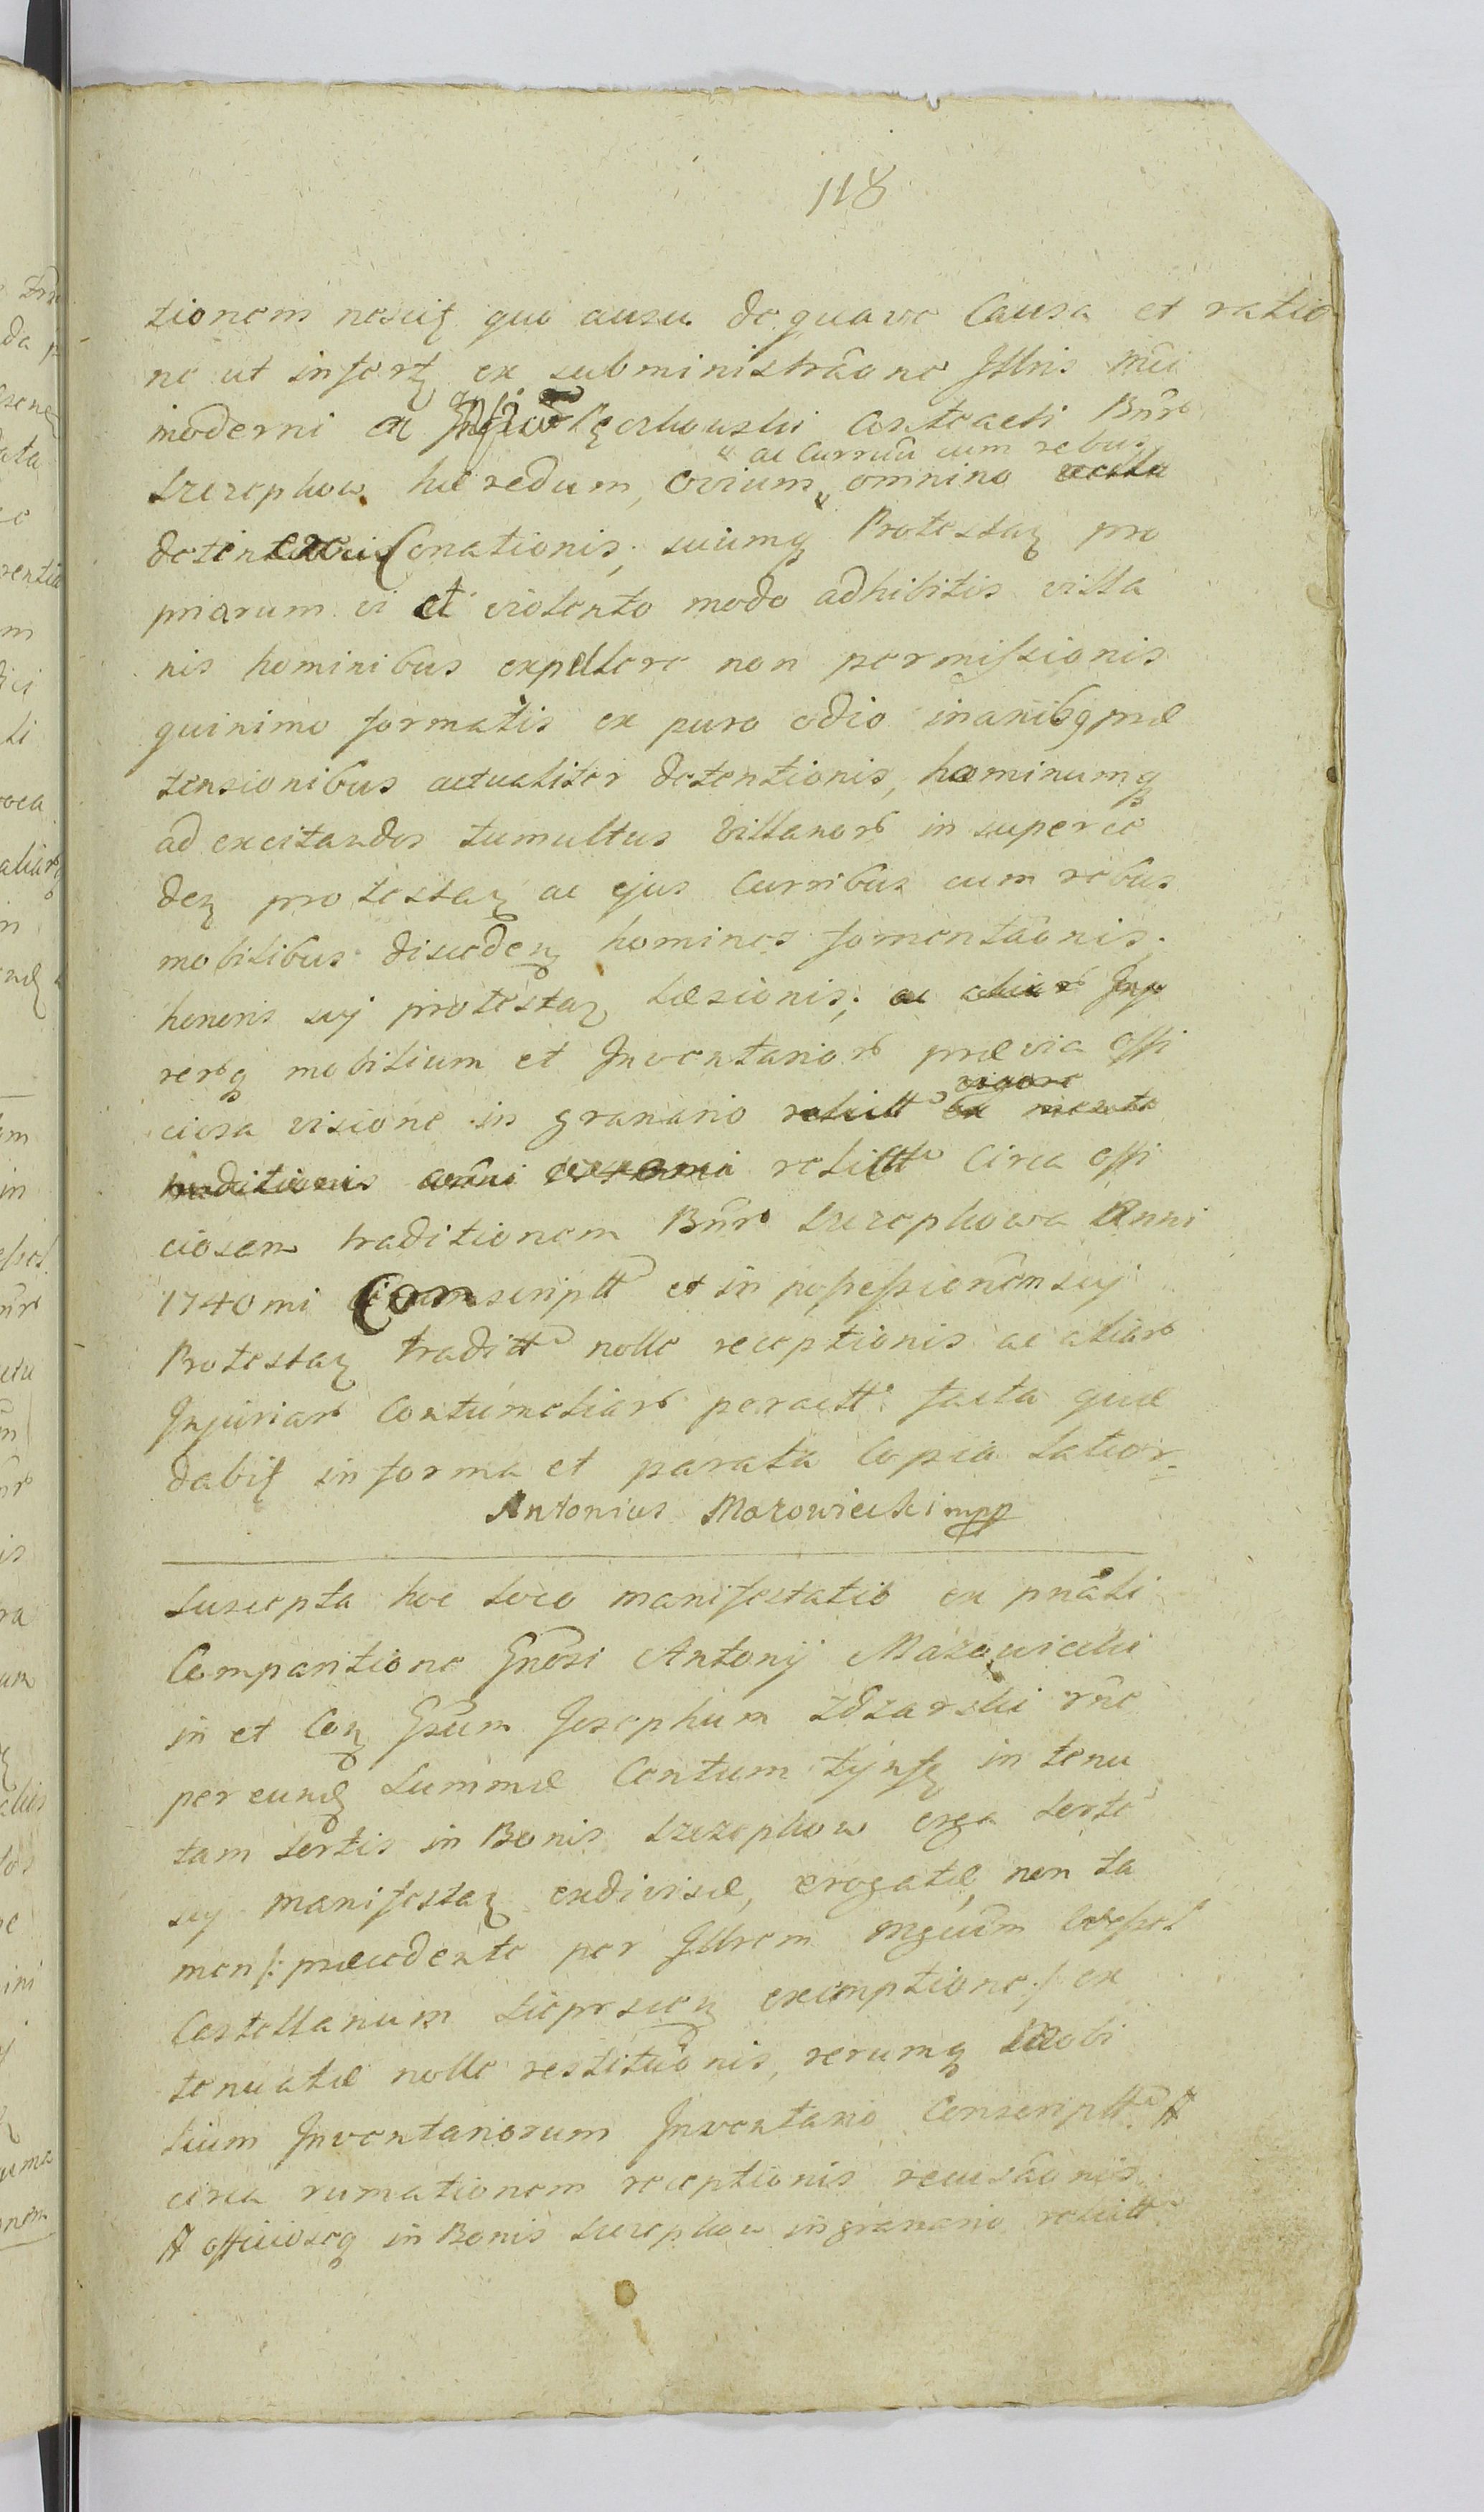 118
tionem nescitꝫ quo ausu de quave Causa et ratio
ne ut infertꝫ ex subministrãone Jllris Mci
moderni ac Castraeti Bnr̃
ac Curruũ cum rebus
Szczepkow hæredum, Ovium omnino
detent Conationis, suiumqꝫ Protestaꝫ pro
priarum vi et violento modo adhibitis villa
nis hominibus expellere non permissionis
quinimo formatis ex puro odio inanibqꝫ præ
tensionibus actualiter detentionis, hominumqꝫ
ad excitandos tumultus Villanorũ in super eo
deꝫ protestaꝫ ac ejus Curribus cum rebus
mobilibus discedenꝫ homines fomentãonis.
honoris suj protestaꝫ læsionis, ac aliarũ Inju
rerũqꝫ mobilium et Jnventariorũ prævia offi
vigore
ciosa visione in granario relictt ex
traditionis relictt circa offi
ciosam traditionem Bnr̃ Szczepkowa Anni
1740mi Conscriptt et in possessionem suj
Protestaꝫ traditt nolle receptionis ac aliarũ
Injuriarũ Contumeliarũ peractt facta quæ
dabitꝫ in forma et parata Copia latior.
Antonius Mazowiecki mpp
Suscepta hoc loco manifestatio ex pnãli
Comparitione Gnõsi Antonij Mazowiecki
in et Conꝫ Gsum Josephum Zdzarski rñe
per eundꝫ Summæ Centum tynfꝫ in tenu
tam sortis in Bonis Szczepkow erga sorte
suj manifestaꝫ exdivisæ, erogatæ, non ta
men /: præcedente per Jllrem Mgcum
Castellanum Sieprscenꝫ exemptione :/ ex
tenuatæ nolle restituõnis, rerumqꝫ Mobi
lium Jnventariorum Jnventario Conscriptt #
circa rumationem receptionis recusãonis
# officioseqꝫ in Bonis Szczepkow in granario relictt